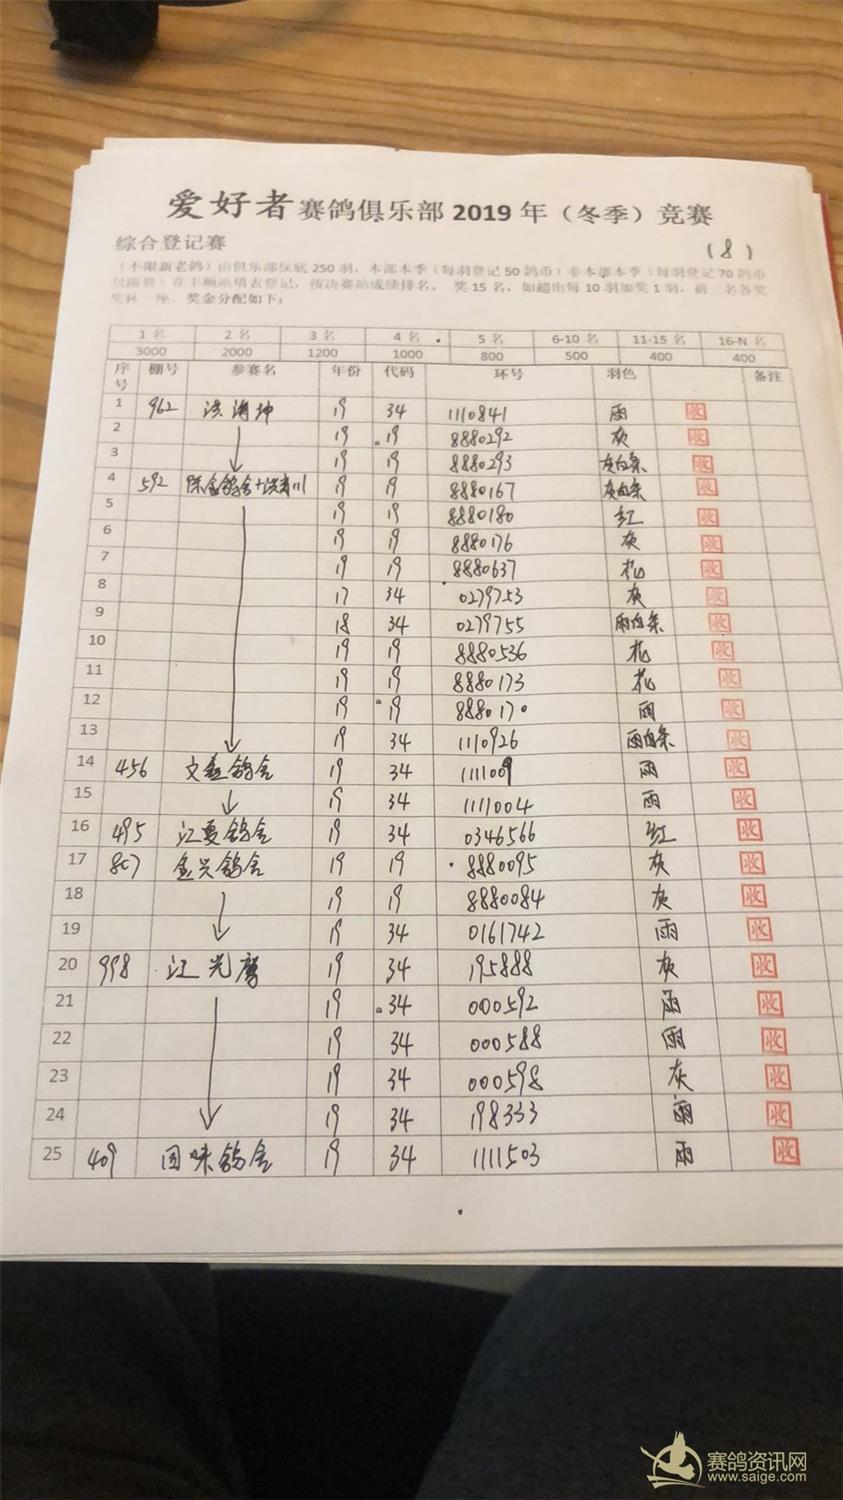 爱好者赛鸽俱乐部2019年（冬季）竞赛
综合登记赛
(8)
（不限新老鸽）由俱乐部保底250羽，本部本季（每羽登记50鸽币）非本部本季（每羽登记70鸽币
包路费）在丰顺站填表登记，按决赛站成绩排名。 奖15名，如超出每10羽加奖1羽，前三名各奖
奖杯一座。奖金分配如下：
1名 2名 3名 4名 5名 6-10名 11-15名 16-N名
3000 2000 1200 1000 800 500 400 400
序号 棚号 参赛名 年份 代码 环号 羽色 备注
1 962 洪海坤 19 34 1110841 雨 收
2 19 19 8880292 灰 收
3 19 19 8880293 灰白条 收
4 592 陈金鸽舍+洪 川 19 19 8880167 灰白条 收
5 19 19 8880180 红 收
6 19 19 8880176 灰 收
7 19 19 8880637 花 收
8 17 34 0279753 灰 收
9 18 34 0279755 雨白条 收
10 19 19 8880536 花 收
11 19 19 8880173 花 收
12 19 19 8880170 雨 收
13 19 34 1110926 雨白条 收
14 456 文鑫鸽舍 19 34 1111009 雨 收
15 19 34 1111004 雨 收
16 495 江夏鸽舍 19 34 0346566 红 收
17 867 金兴鸽舍 19 19 8880095 灰 收
18 19 19 8880084 灰 收
19 19 34 0161742 雨 收
20 998 江光 19 34 195888 灰 收
21 19 34 000592 雨 收
22 19 34 000588 雨 收
23 19 34 000598 灰 收
24 19 34 198333 雨 收
25 409 回味鸽舍 19 34 1111503 雨 收
赛鸽资讯网
www.saige.com